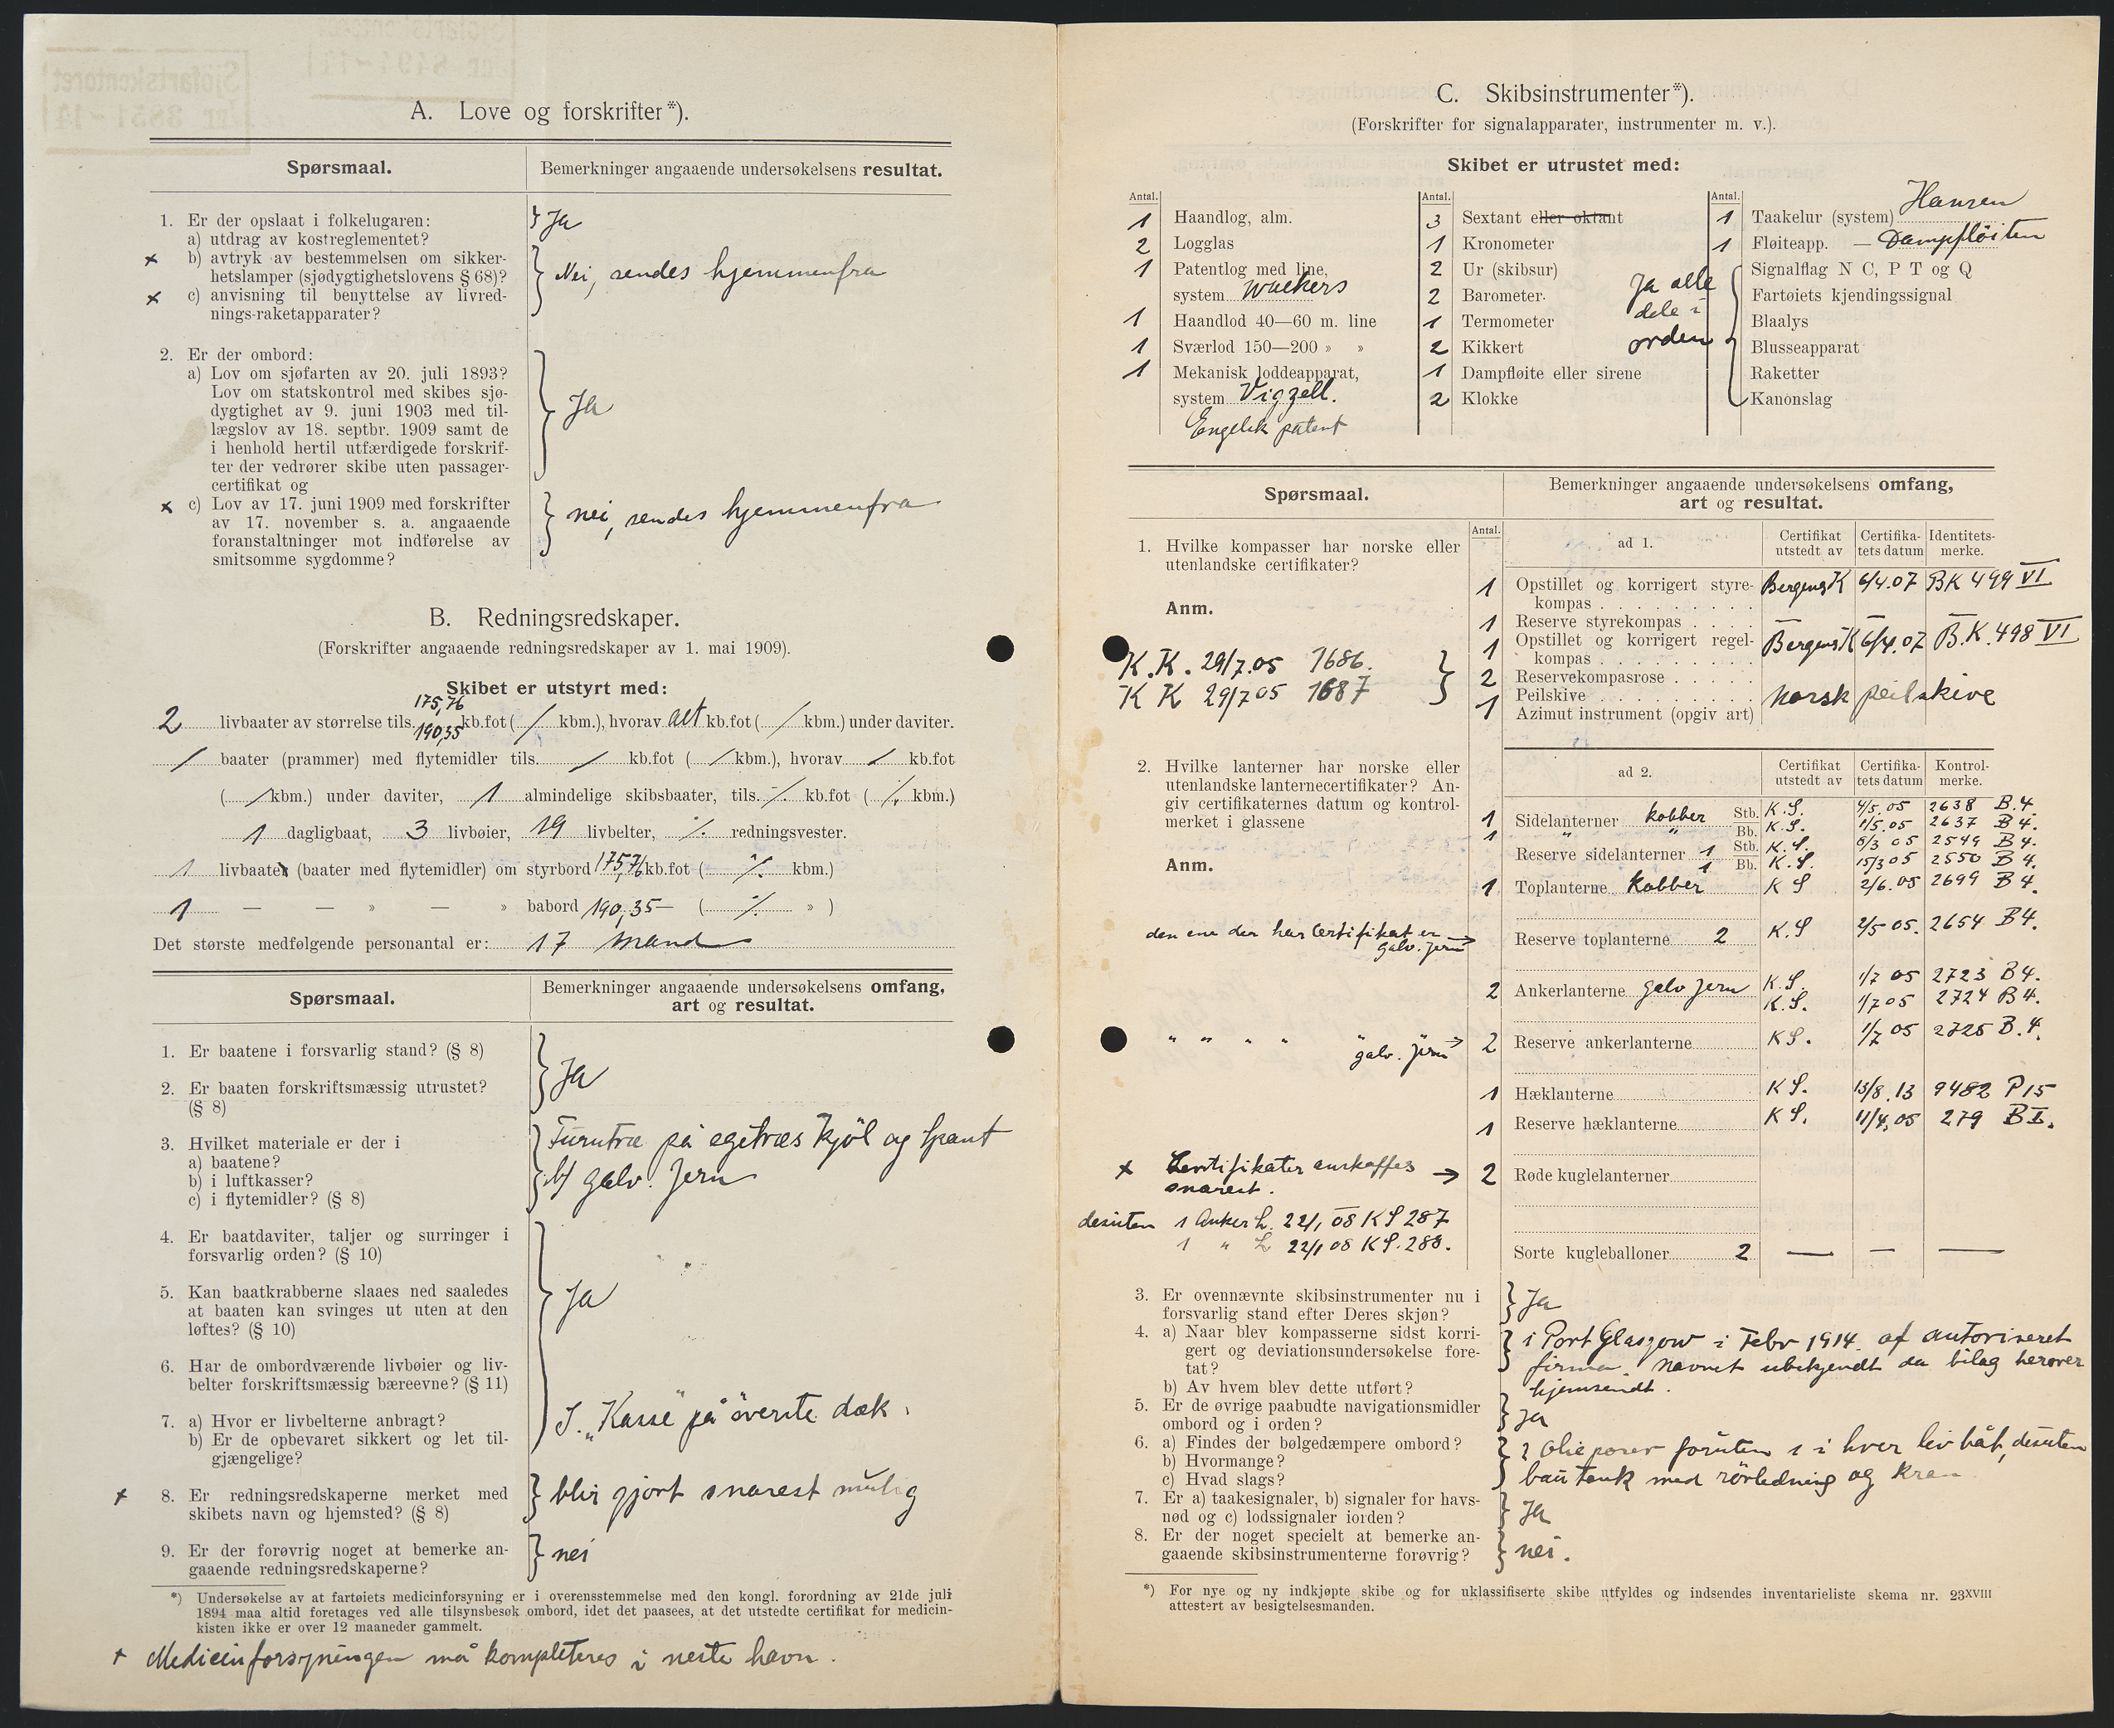 A. Love og forskrifter*).
Spørsmaal.
Bemerkninger angaaende undersøkelsens resultat.
1. Er der opslaat i folkelugaren:
a) utdrag av kostreglementet?
} Ja
x b) avtryk av bestemmelsen om sikker-
hetslamper (sjødygtighetslovens § 68)?
x c) anvisning til benyttelse av livred-
nings-raketapparater?
} Nei, sendes hjemmenfra
2. Er der ombord:
a) Lov om sjøfarten av 20. juli 1893?
Lov om statskontrol med skibes sjø-
dygtighet av 9. juni 1903 med til-
lægslov av 18. septbr. 1909 samt de
i henhold hertil utfærdigede forskrif-
ter der vedrører skibe uten passager-
certifikat og
} Ja
x c) Lov av 17. juni 1909 med forskrifter
av 17. november s. a. angaaende
foranstaltninger mot indførelse av
smitsomme sygdomme?
} nei, sendes hjemmenfra
B. Redningsredskaper.
(Forskrifter angaaende redningsredskaper av 1. mai 1909).
Skibet er utstyrt med:
175,76
2 livbaater av størrelse tils. 190,35 kb.fot ( / kbm.), hvorav alt kb.fot ( / kbm.) under daviter.
/ baater (prammer) med flytemidler tils. / kb.fot ( / kbm.), hvorav / kb.fot
( / kbm.) under daviter, 1 almindelige skibsbaater, tils. ./. kb.fot ( ./. kbm.)
1 dagligbaat, 3 livbøier, 19 livbelter, ./. redningsvester.
1 livbaater (baater med flytemidler) om styrbord 175,76 kb.fot ( ./. kbm.)
1 — — » — » babord 190,35 — ( ./. » )
Det største medfølgende personantal er: 17 mand
Spørsmaal.
Bemerkninger angaaende undersøkelsens omfang,
art og resultat.
1. Er baatene i forsvarlig stand? (§ 8)
2. Er baaten forskriftsmæssig utrustet?
(§ 8)
} Ja
3. Hvilket materiale er der i
a) baatene?
b) i luftkasser?
c) i flytemidler? (§ 8)
} Furutræ på egetræs kjøl og spant
b/ galv. Jern
4. Er baatdaviter, taljer og surringer i
forsvarlig orden? (§ 10)
5. Kan baatkrabberne slaaes ned saaledes
at baaten kan svinges ut uten at den
løftes? (§ 10)
} Ja
6. Har de ombordværende livbøier og liv-
belter forskriftsmæssig bæreevne? (§ 11)
7. a) Hvor er livbelterne anbragt?
b) Er de opbevaret sikkert og let til-
gjængelige?
I. „Kasse" på øverste dæk.
x 8. Er redningsredskaperne merket med
skibets navn og hjemsted? (§ 8)
} blir gjort snarest mulig
9. Er der forøvrig noget at bemerke an-
gaaende redningsredskaperne?
} nei
*) Undersøkelse av at fartøiets medicinforsyning er i overensstemmelse med den kongl. forordning av 21de juli
1894 maa altid foretages ved alle tilsynsbesøk ombord, idet det paasees, at det utstedte certifikat for medicin-
kisten ikke er over 12 maaneder gammelt.
x Medicinforsyningen må kompleteres i neste havn.
C. Skibsinstrumenter*).
(Forskrifter for signalapparater, instrumenter m. v.).
Skibet er utrustet med:
Antal.
1 Haandlog, alm.
2 Logglas
1 Patentlog med line,
system Walkers
1 Haandlod 40—60 m. line
1 Sværlod 150—200 » »
1 Mekanisk loddeapparat,
system Vigzell.
Engelsk patent
Antal.
3 Sextant eller oktant
1 Kronometer
2 Ur (skibsur)
2 Barometer
1 Termometer
2 Kikkert
1 Dampfløite eller sirene
2 Klokke
Antal.
1 Taakelur (system) Hansen
1 Fløiteapp. — Dampfløiten
Signalflag N C, P T og Q
Fartøiets kjendingssignal
Blaalys
Blusseapparat
Raketter
Kanonslag
Ja alle
dele i
orden
Spørsmaal.
Bemerkninger angaaende undersøkelsens omfang,
art og resultat.
1. Hvilke kompasser har norske eller
utenlandske certifikater?
Anm.
K.K. 29/7.05 1686.
K K 29/7 05 1687 }
Antal.
ad 1.
Certifikat
utstedt av
Certifika-
tets datum
Identitets-
merke.
1 Opstillet og korrigert styre-
kompas Bergens K 6/4.07 BK 499 VI
1 Reserve styrekompas — —
1 Opstillet og korrigert regel-
kompas Bergens K 6/4.07 B.K. 498 VI
2 Reservekompasrose
1 Peilskive Norsk peilskive
Azimut instrument (opgiv art)
2. Hvilke lanterner har norske eller
utenlandske lanternecertifikater? An-
giv certifikaternes datum og kontrol-
merket i glassene
Anm.
ad 2.
Certifikat
utstedt av
Certifika-
tets datum
Kontrol-
merke.
1 Sidelanterner kobber Stb. K.S. 4/5.05 2638 B.4.
1 " " Bb. K.S. 1/5.05 2637 B 4.
Reserve sidelanterner 1 Stb. K.S. 6/3 05 2549 B 4.
1 Bb. K.S. 15/3 05 2550 B 4.
1 Toplanterne Kobber K S 2/6.05 2699 B 4.
den ene der har Certifikat er
galv. jern →
Reserve toplanterne 2 K.S 2/5 05. 2654 B4.
2 Ankerlanterne galv jern K.S. 1/7 05 2723 B4.
K.S. 1/7 05 2724 B 4.
" " " " " galv. jern → 2 Reserve ankerlanterne KS. 1/7 05 2725 B.4.
1 Hæklanterne K S. 13/8.13 9482 P 15
1 Reserve hæklanterne K S. 11/4.05 279 BI.
x Certifikater anskaffes
snarest. → 2 Røde kuglelanterner
desuten 1 Anker L. 22/1 08 KS 287
1 " L 22/1 08 KS. 288.
Sorte kugleballoner 2 — — —
3. Er ovennævnte skibsinstrumenter nu i
forsvarlig stand efter Deres skjøn?
} Ja
4. a) Naar blev kompasserne sidst korri-
gert og deviationsundersøkelse fore-
tat?
b) Av hvem blev dette utført?
} i Port Glasgow i Febr 1914. af autoriseret
firma. navnet ubekjendt da bilag herover
hjemsendt.
5. Er de øvrige paabudte navigationsmidler
ombord og i orden?
} Ja
6. a) Findes der bølgedæmpere ombord?
b) Hvormange?
c) Hvad slags?
} 2 Olieposer foruten 1 i hver livbåt, desuten
tank med rørledning og kran
7. Er a) taakesignaler, b) signaler for havs-
nød og c) lodssignaler iorden?
} Ja
8. Er der noget specielt at bemerke an-
gaaende skibsinstrumenterne forøvrig?
} nei.
*) For nye og ny indkjøpte skibe og for uklassifiserte skibe utfyldes og indsendes inventarieliste skema nr. 23XVIII
attestert av besigtelsesmanden.